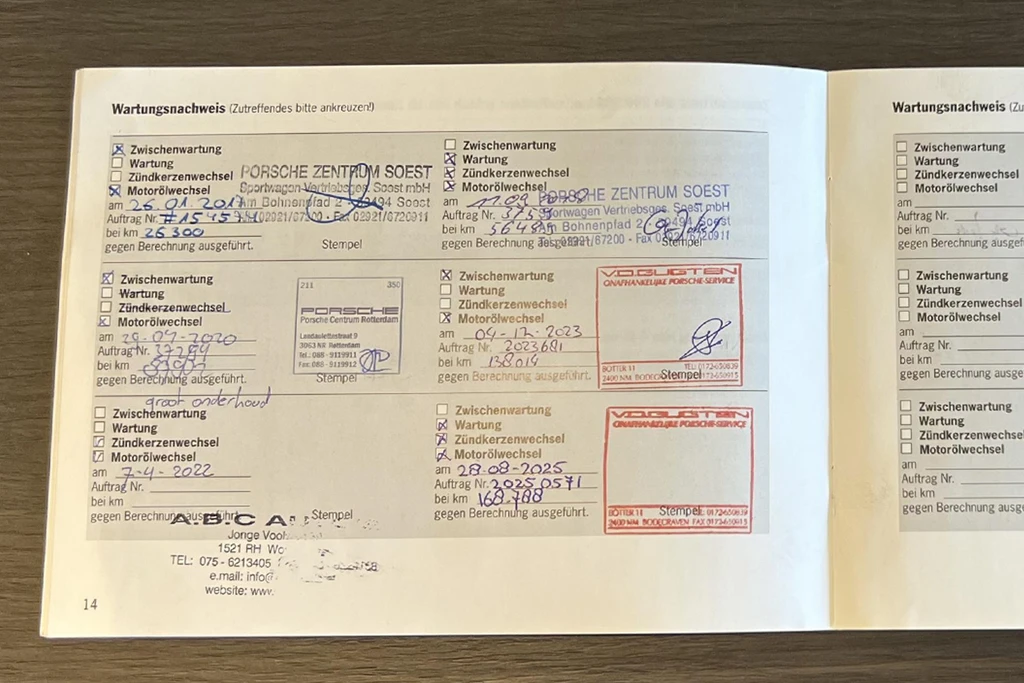 Wartungsnachweis (Zutreffendes bitte ankreuzen!)
Zwischenwartung
Wartung
Zündkerzenwechsel
Motorölwechsel
am 26.01.2017
Auftrag Nr.
bei km 26300
gegen Berechnung ausgeführt.
PORSCHE ZENTRUM SOEST
Sportwagen Vertriebsges. Soest mbH
Am Bohnenpfad 2 59494 Soest
Tel. 02921/67200 - Fax 02921/6720911
Stempel
Zwischenwartung
Wartung
Zündkerzenwechsel
Motorölwechsel
am
Auftrag Nr.
bei km
gegen Berechnung ausgeführt.
PORSCHE ZENTRUM SOEST
Sportwagen Vertriebsges. Soest mbH
Am Bohnenpfad 2 59494 Soest
Tel. 02921/67200 - Fax 02921/6720911
Stempel
Zwischenwartung
Wartung
Zündkerzenwechsel
Motorölwechsel
am
Auftrag Nr.
bei km
gegen Berechnung ausgeführt.
211 350
PORSCHE
Porsche Centrum Rotterdam
3063 NR Rotterdam
Tel.: 088 - 9119911
Fax: 088 - 9119912
Stempel
Zwischenwartung
Wartung
Zündkerzenwechsel
Motorölwechsel
am 04-12-2023
Auftrag Nr. 2023681
bei km 138014
gegen Berechnung ausgeführt.
V.D.BUGTEN
ONAFHANKELIJKE PORSCHE-SERVICE
BOTTER 11 TEL: 0172-650839
2400 NM BODEGRAVEN FAX 0172-650915
Stempel
groot onderhoud
Zwischenwartung
Wartung
Zündkerzenwechsel
Motorölwechsel
am 7-4-2022
Auftrag Nr.
bei km
gegen Berechnung ausgeführt.
Stempel
A.B.C
1521 RH
TEL: 075 - 6213405
e.mail: info@
website: www.
Zwischenwartung
Wartung
Zündkerzenwechsel
Motorölwechsel
am 28-08-2025
Auftrag Nr. 20250571
bei km 168.788
gegen Berechnung ausgeführt.
V.D.BUGTEN
ONAFHANKELIJKE PORSCHE-SERVICE
BOTTER 11 TEL: 0172-650839
2400 NM BODEGRAVEN FAX 0172-650915
Stempel
14
Wartungsnachweis
Zwischenwartung
Wartung
Zündkerzenwechsel
Motorölwechsel
am
Auftrag Nr.
bei km
gegen Berechnung
Zwischenwartung
Wartung
Zündkerzenwechsel
Motorölwechsel
am
Auftrag Nr.
bei km
gegen Berechnung
Zwischenwartung
Wartung
Zündkerzenwechsel
Motorölwechsel
am
Auftrag Nr.
bei km
gegen Berechnung